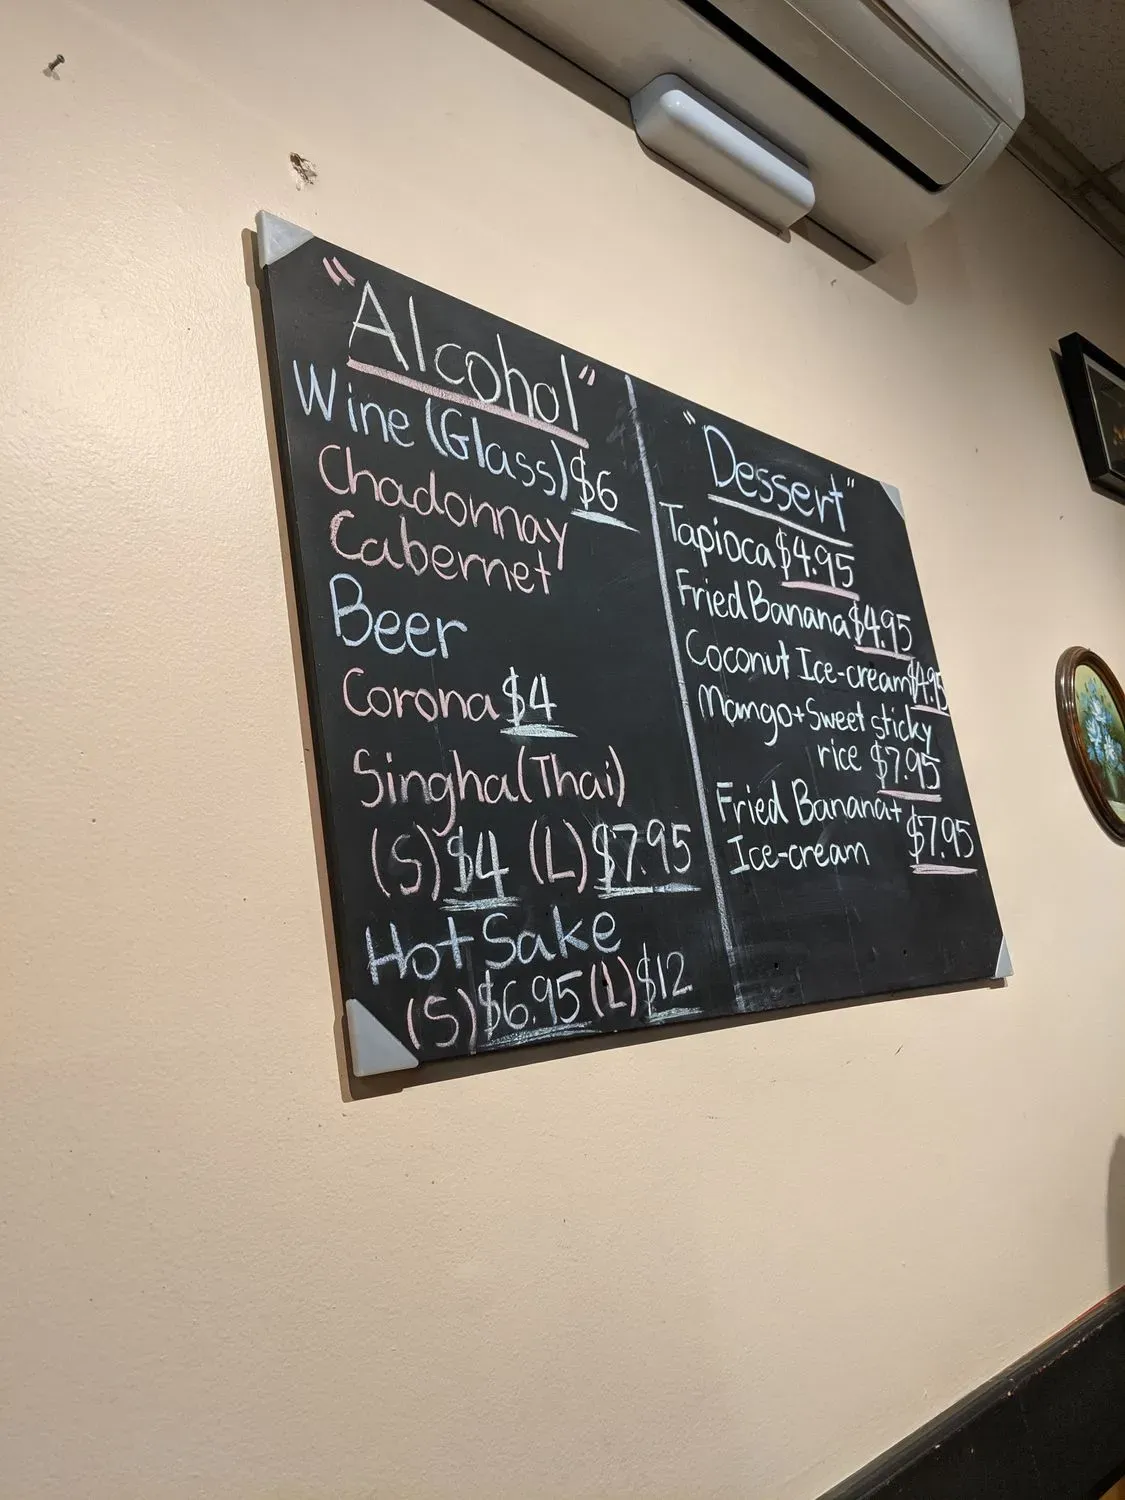 "Alcohol"
Wine (Glass) $6
Chadonnay
Cabernet
Beer
Corona $4
Singha (Thai)
(S) $4 (L) $7.95
Hot Sake
(S) $6.95 (L) $12
"Dessert"
Tapioca $4.95
Fried Banana $4.95
Coconut Ice-cream $4.95
Mango + Sweet sticky
rice $7.95
Fried Banana +
Ice-cream $7.95